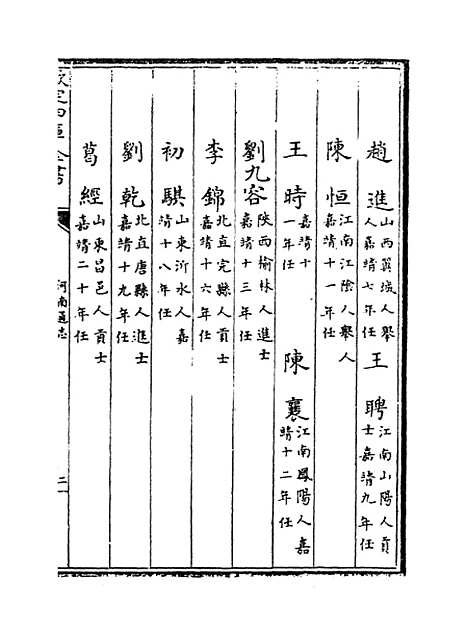 趙進山西翼城人舉人嘉靖七年任
王聘江南山陽人貢士嘉靖九年任
陳恒江南江陰人舉人嘉靖十一年任
王時嘉靖十一年任
陳襄江南鳳陽人嘉靖十二年任
劉九容陜西榆林人進士嘉靖十三年任
李錦北直完縣人貢士嘉靖十六年任
初騏山東沂水人嘉靖十八年任
劉乾北直唐縣人進士嘉靖十九年任
葛經山東昌邑人貢士嘉靖二十年任
欽定四庫全書
河南通志